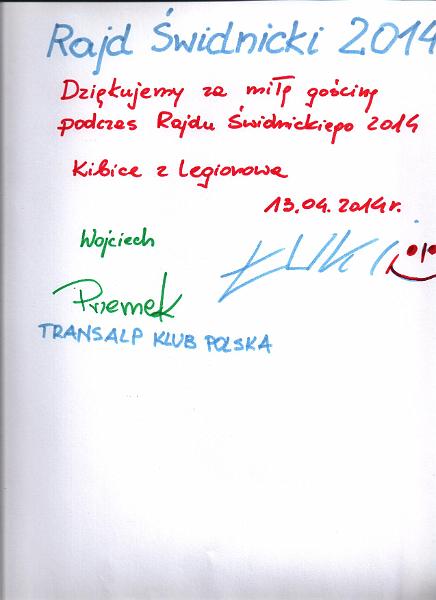 Rajd Świdnicki 2014
Dziękujemy za miłą gościnę
podczas Rajdu Świdnickiego 2014
Kibice z Legionowa
13.04.2014r.
Wojciech
ŁUKI
Przemek
TRANSALP KLUB POLSKA